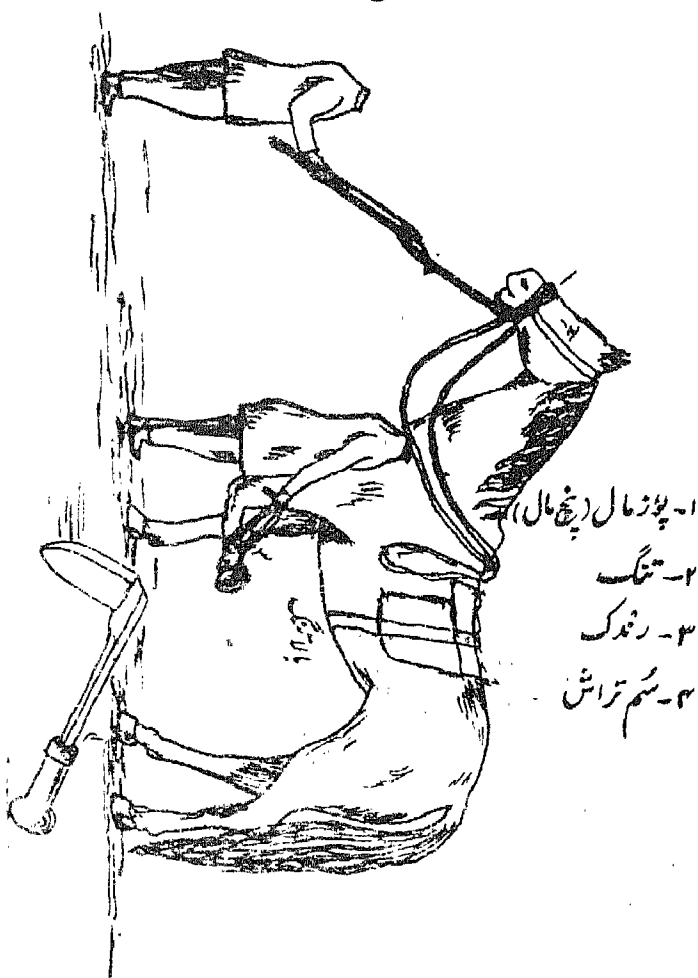 ۱- پُوزمال (پنج مال)
۲- تنگ
۳- رندک
۴- سُم تراش